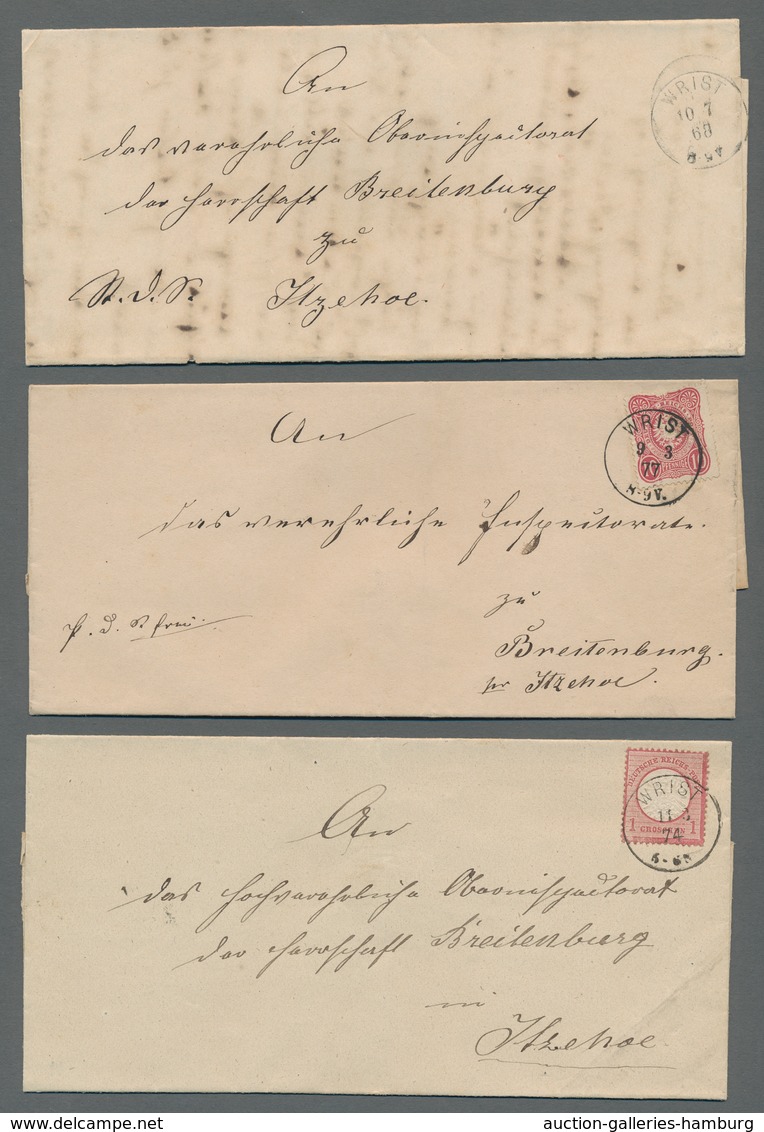 An
das verehrliche Oberinspectorat
der Herrschaft Breitenburg
zu
Itzehoe.
WRIST
10 7
68
An
das verehrliche Inspectorate.
zu
Breitenburg.
pr Itzehoe.
P. D. S. frei.
WRIST
9 3
77
8-9V.
PFENNIG
An
das hochverehrliche Oberinspectorat
der Herrschaft Breitenburg
in
Itzehoe.
DEUTSCHE REICHS-POST
WRIST
74
1 GROSCHEN 1
auction-galleries-hamburg.com